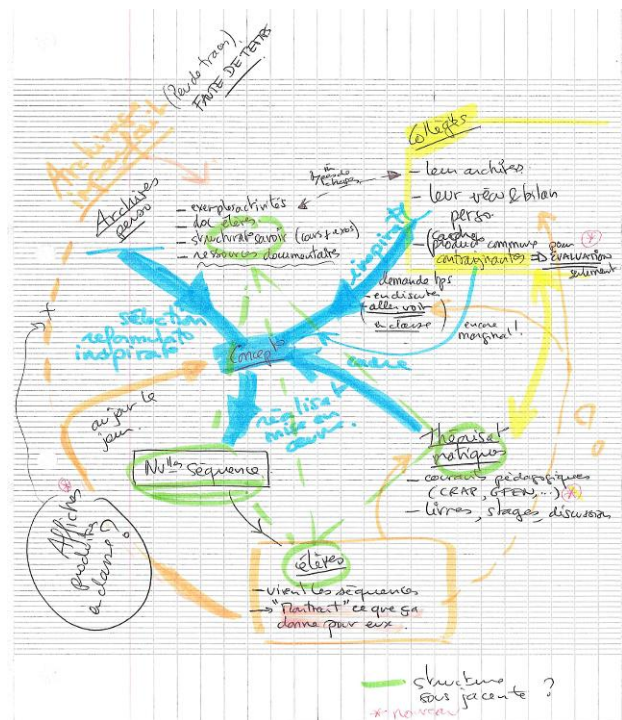 (Peu de traces)
FAUTE DE TEMPS
Archivage
imparfait
Archives
perso
- exemples activités
- doc élèves
- structurat° savoir (cours + exos)
- ressources documentaires
Collègues
- leurs archives
- leur vécu & bilan
perso
product° commune pour
contraignantes ⇒ EVALUATION
seulement
inspirat°
demande tps
- en discute
- aller voir
en classe
encore
marginal!
sélection
reformulat°
inspirat°
Concept°
cadre
au jour le
jour.
réalisat°
mise en
œuvre.
Nvlles séquence
Théorisat°
pratiques
- courants pédagogiques
(CRAP, GFEN, ...)
- livres, stages, discussion
Affiches
produites
en classe?
élèves
- vivent les séquences
→ "Montrent" ce que ça
donne pour eux.
structure
sous jacente ?
* nouveau